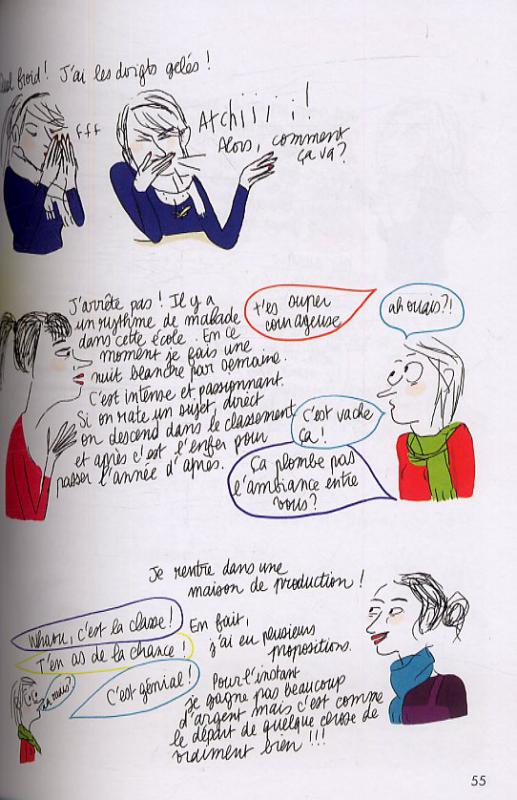 froid! J'ai les doigts gelés!
fff
Atchiiiii!
Alors, comment
ça va?
J'arrête pas! Il y a
un rythme de malade
dans cette école. En ce
moment je fais une
nuit blanche par semaine.
C'est intense et passionnant.
Si on rate un sujet, direct
on descend dans le classement
et après c'est l'enfer pour
passer l'année d'après.
t'es super
courageuse
ah ouais?!
C'est vache
ça!
Ça plombe pas
l'ambiance entre
vous?
Je rentre dans une
maison de production!
Whaou, c'est la classe!
T'en as de la chance!
C'est génial!
ah ouais?
En fait,
j'ai eu plusieurs
propositions.
Pour l'instant
je gagne pas beaucoup
d'argent mais c'est comme
le départ de quelque chose de
vraiment bien!!!
55